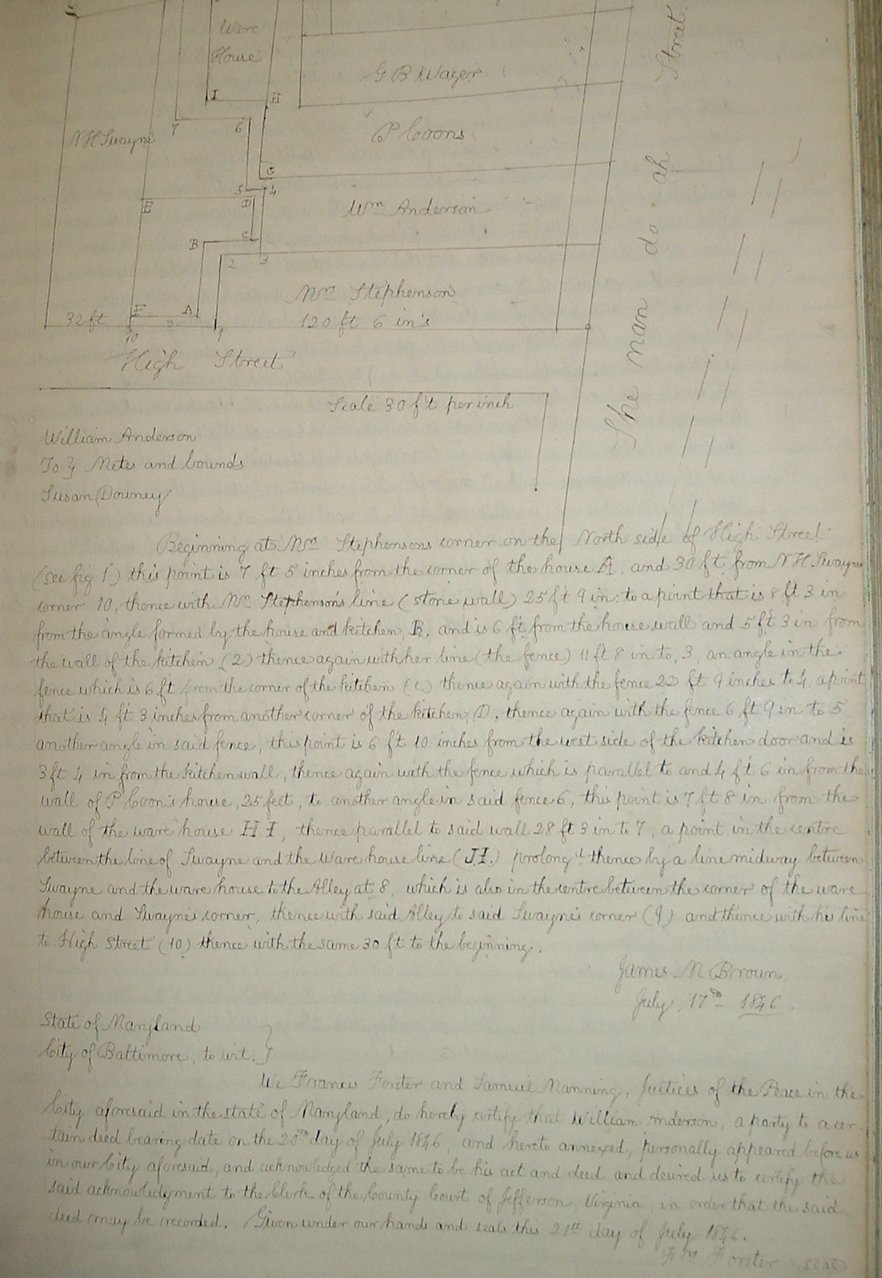 Ware
House
G B Wager
I H
7 6
N H Swayne
P Coons
G
5 4
E D
Wm Anderson
B C
2 3
Mrs Stephenson
32 ft F A 120 ft 6 in's
10 30 1
High Street
Shenandoah Street
Scale 30 ft per inch
William Anderson
To } Metes and bounds
Susan Downey
Beginning at Mrs Stephensons corner on the North side of High Street
(see fig 1) this point is 7 ft 5 inches from the corner of the house A, and 30 ft from N H Swayne
corner 10, thence with Mrs Stephenson's line (stone wall) 25 ft 9 in: to a point that is 8 ft 3 in
from the angle formed by the house and kitchen, B, and is 6 ft from the house wall and 5 ft 3 in from
the wall of the kitchen (2) thence again with her line (the fence) 11 ft 8 in to, 3, an angle in the
fence which is 6 ft from the corner of the kitchen (C) thence again with the fence 22 ft 9 inches to 4 a point
that is 4 ft 3 inches from another corner of the kitchen, D, thence again with the fence 6 ft 9 in to 5
another angle in said fence, this point is 6 ft 10 inches from the west side of the kitchen door and is
3 ft 4 in from the kitchen wall, thence again with the fence which is parallel to and 4 ft 6 in from the
wall of P Coon's house, 25 feet, to another angle in said fence 6, this point is 7 ft 8 in from the
wall of the ware house H I, thence parallel to said wall 28 ft 3 in to 7, a point in the centre
between the line of Swayne and the Ware house line (JI.) prolong'd thence by a line midway between
Swayne and the ware house to the Alley at 8, which is also in the centre between the corner of the ware
house and Swayne's corner, thence with said Alley to said Swayne's corner (9) and thence with his line
to High Street (10) thence with the same 30 ft to the beginning.
James M Brown
July, 17th 1846.
State of Maryland
City of Baltimore, to wit: }
We Francis Forster and Samuel Manning, Justices of the Peace in the
City aforesaid in the state of Maryland, do hereby certify that William Anderson, a party to a cer
tain deed bearing date on the 20th day of July 1846, and hereto annexed, personally appeared before us
in our City aforesaid, and acknowledged the same to be his act and deed and desired us to certify the
said acknowledgment to the Clerk of the County Court of Jefferson, Virginia, in order that the said
deed may be recorded. Given under our hands and seals this 21st day of July 1846.
Fra Forster seal